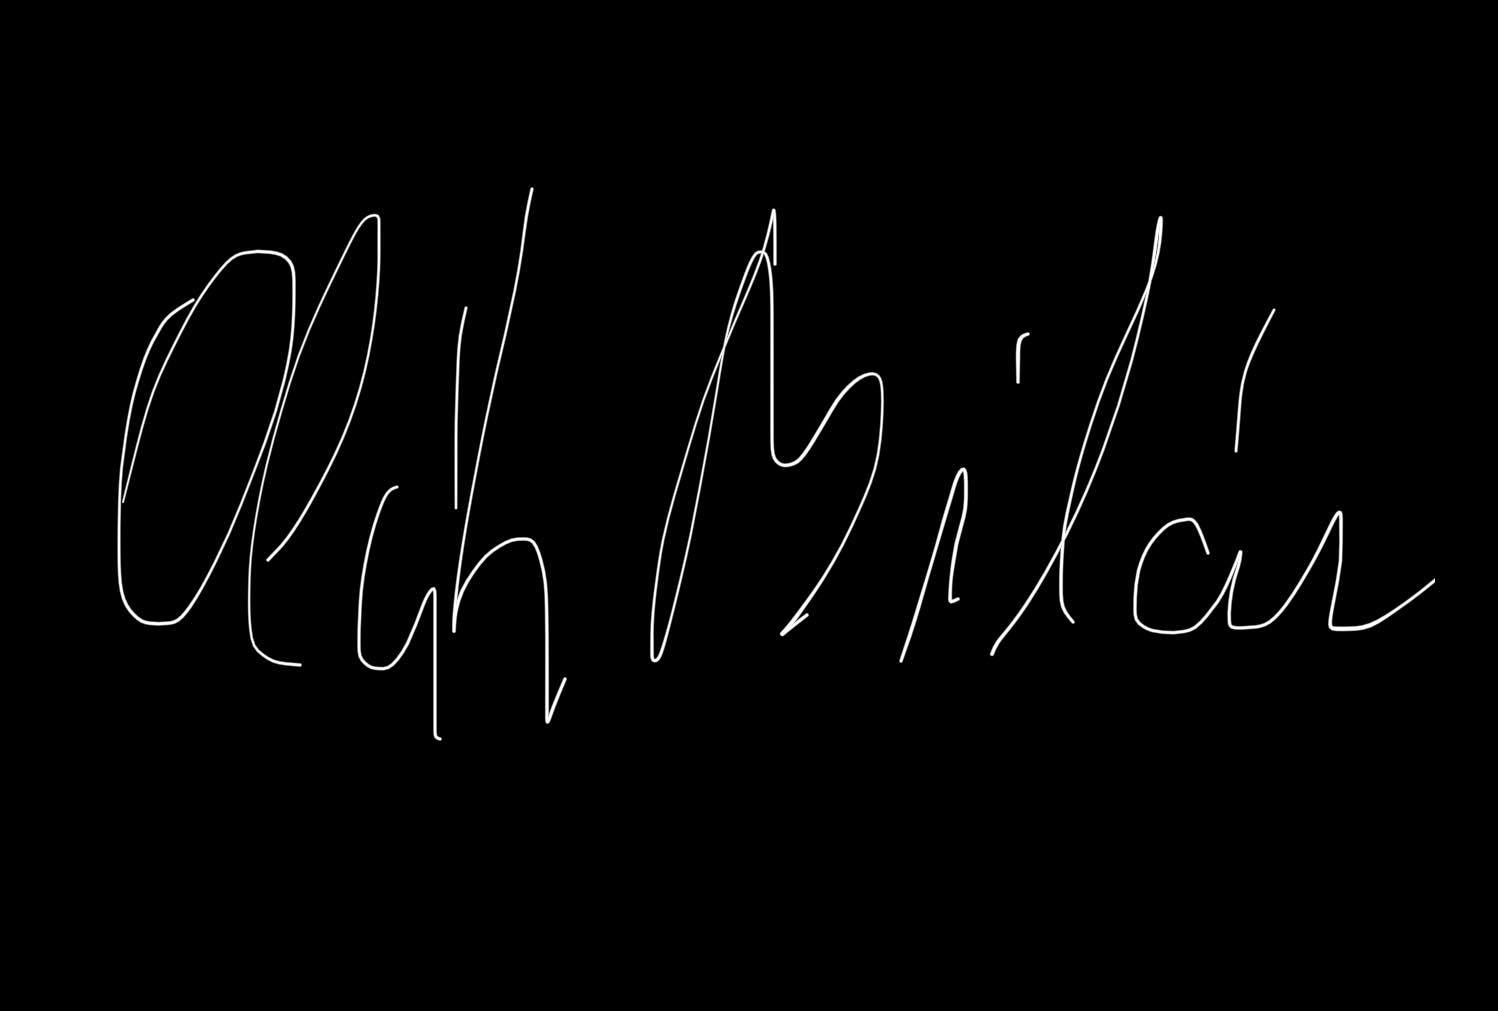 Oláh Milán